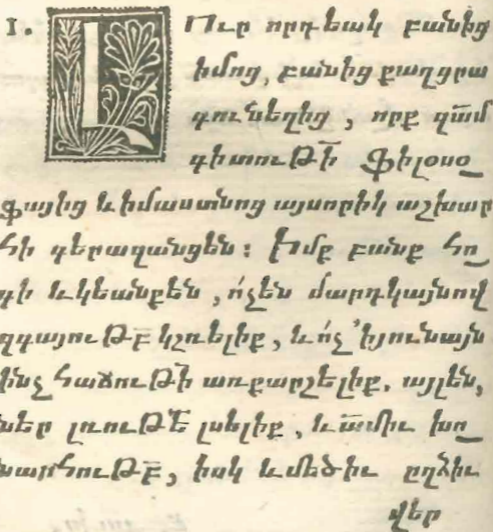 1. Լուր որդեակ բանից
իմոց, բանից քաղցրա
գունեղից, որք զա՟մ
գիտութի՟ Փիլօսօ_
ֆայից և իմաստնոց այսորիկ աշխար
հի գերազանցեն: Իմք բանք հո_
գի և կեանք են, ո՛չ են մարդկայնով
զգայութբ՟ կշռելիք, և ո՛չ ՚ի յունայն
ինչ հաճութի՟ առքարշելիք. այլ են,
ներ լռութե՟ լսելիք, և ա՟միւ խո_
նարհութբ՟, իսկ և մեծիւ ըղձիւ
վեր